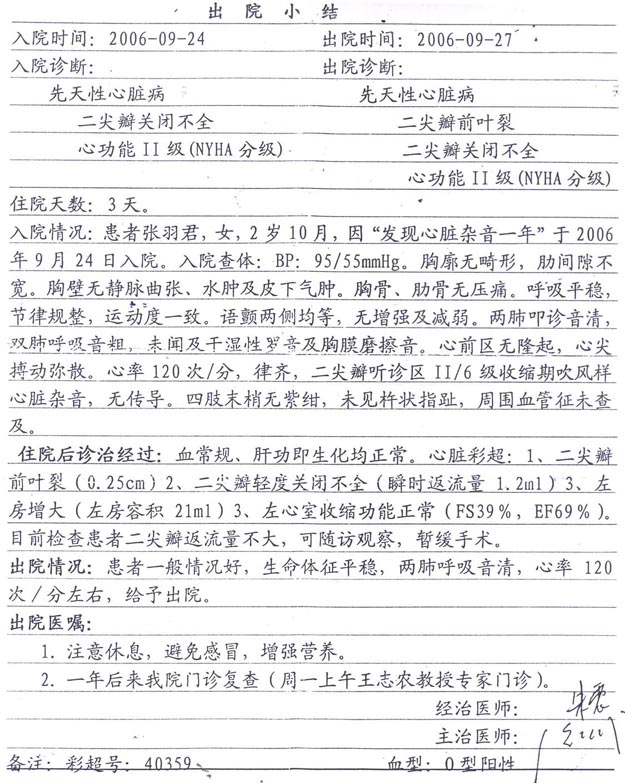 出院小结
入院时间：2006-09-24 出院时间：2006-09-27
入院诊断： 出院诊断：
先天性心脏病 先天性心脏病
二尖瓣关闭不全 二尖瓣前叶裂
心功能 II 级(NYHA 分级) 二尖瓣关闭不全
心功能 II 级(NYHA 分级)
住院天数：3 天。
入院情况：患者张羽君，女，2 岁 10 月，因“发现心脏杂音一年”于 2006
年 9 月 24 日入院。入院查体：BP：95/55mmHg。胸廓无畸形，肋间隙不
宽。胸壁无静脉曲张、水肿及皮下气肿。胸骨、肋骨无压痛。呼吸平稳，
节律规整，运动度一致。语颤两侧均等，无增强及减弱。两肺叩诊音清，
双肺呼吸音粗，未闻及干湿性罗音及胸膜磨擦音。心前区无隆起，心尖
搏动弥散。心率 120 次/分，律齐，二尖瓣听诊区 II/6 级收缩期吹风样
心脏杂音，无传导。四肢末梢无紫绀，未见杵状指趾，周围血管征未查
及。
住院后诊治经过：血常规、肝功即生化均正常。心脏彩超：1、二尖瓣
前叶裂（0.25cm）2、二尖瓣轻度关闭不全（瞬时返流量 1.2ml）3、左
房增大（左房容积 21ml）3、左心室收缩功能正常（FS39%，EF69%）。
目前检查患者二尖瓣返流量不大，可随访观察，暂缓手术。
出院情况：患者一般情况好，生命体征平稳，两肺呼吸音清，心率 120
次／分左右，给予出院。
出院医嘱：
1. 注意休息，避免感冒，增强营养。
2. 一年后来我院门诊复查（周一上午王志农教授专家门诊）。
经治医师：
主治医师：
备注：彩超号：40359 血型：O 型阳性